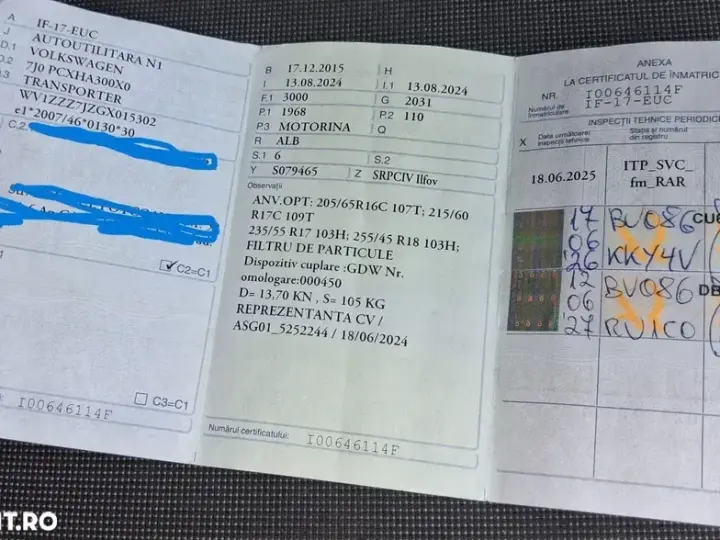 A IF-17-EUC
J AUTOUTILITARA N1
D.1 VOLKSWAGEN
D.2 7J0 PCXHA300X0
D.3 TRANSPORTER
WV1ZZZ7JZGX015302
e1*2007/46*0130*30
C.2.
C2=C1
C3=C1
I00646114F
B 17.12.2015 H
I 13.08.2024 I.1 13.08.2024
F.1 3000 G 2031
P.1 1968 P.2 110
P.3 MOTORINA Q
R ALB
S.1 6 S.2
Y S079465 Z SRPCIV Ilfov
Observații
ANV.OPT: 205/65R16C 107T; 215/60
R17C 109T
235/55 R17 103H; 255/45 R18 103H;
FILTRU DE PARTICULE
Dispozitiv cuplare :GDW Nr.
omologare:000450
D= 13,70 KN , S= 105 KG
REPREZENTANTA CV /
ASG01_5252244 / 18/06/2024
Numărul certificatului: I00646114F
ANEXA
LA CERTIFICATUL DE ÎNMATRIC
NR. I00646114F
Numărul de înmatriculare: IF-17-EUC
INSPECȚII TEHNICE PERIODIC
X Data următoarei inspecții tehnice
Ștapila și numărul din registru
18.06.2025 ITP_SVC_
fm_RAR
17 BV086
06
'26 KKY4V
12 BV086
06
'27 RV1CO
IT.RO